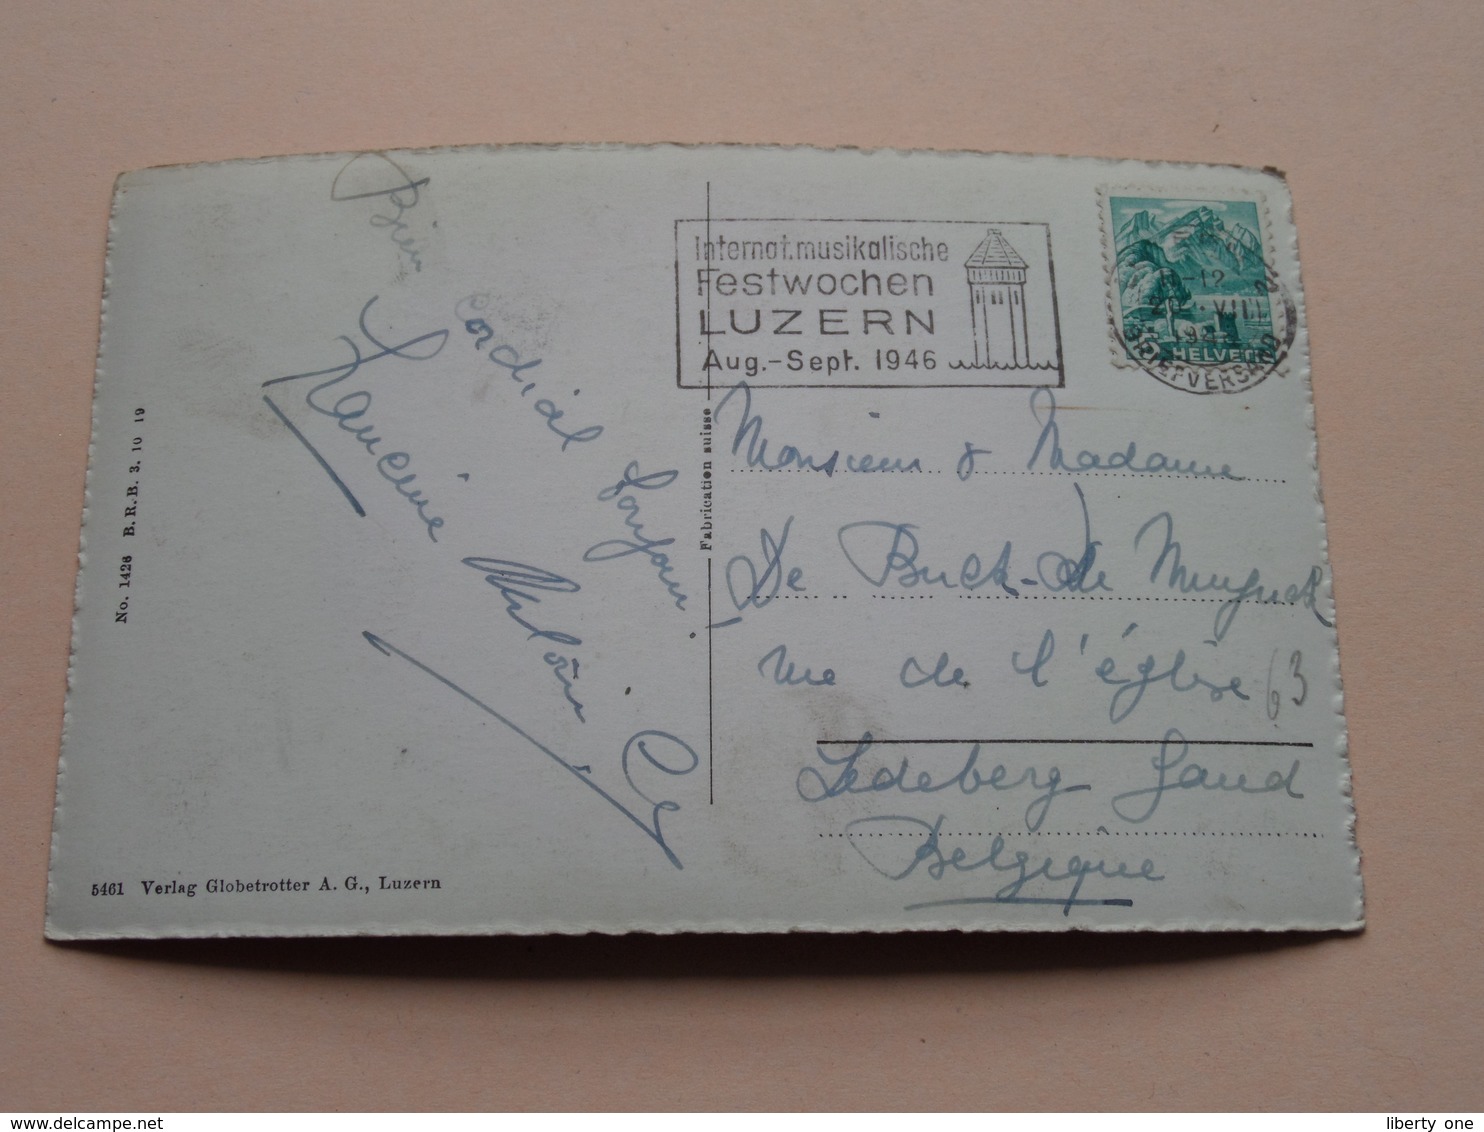 Internat. musikalische
Festwochen
LUZERN
Aug.-Sept. 1946
-12
VIII
BRIEFVERSAND
HELVETIA
Cordial bonjour
Monsieur & Madame
De Buck-De Muynck
rue de l'église 63
Ledeberg Gand
Belgique
Fabrication suisse
No. 1426 B.R.B. 3. 10 19
5461 Verlag Globetrotter A. G., Luzern
liberty one